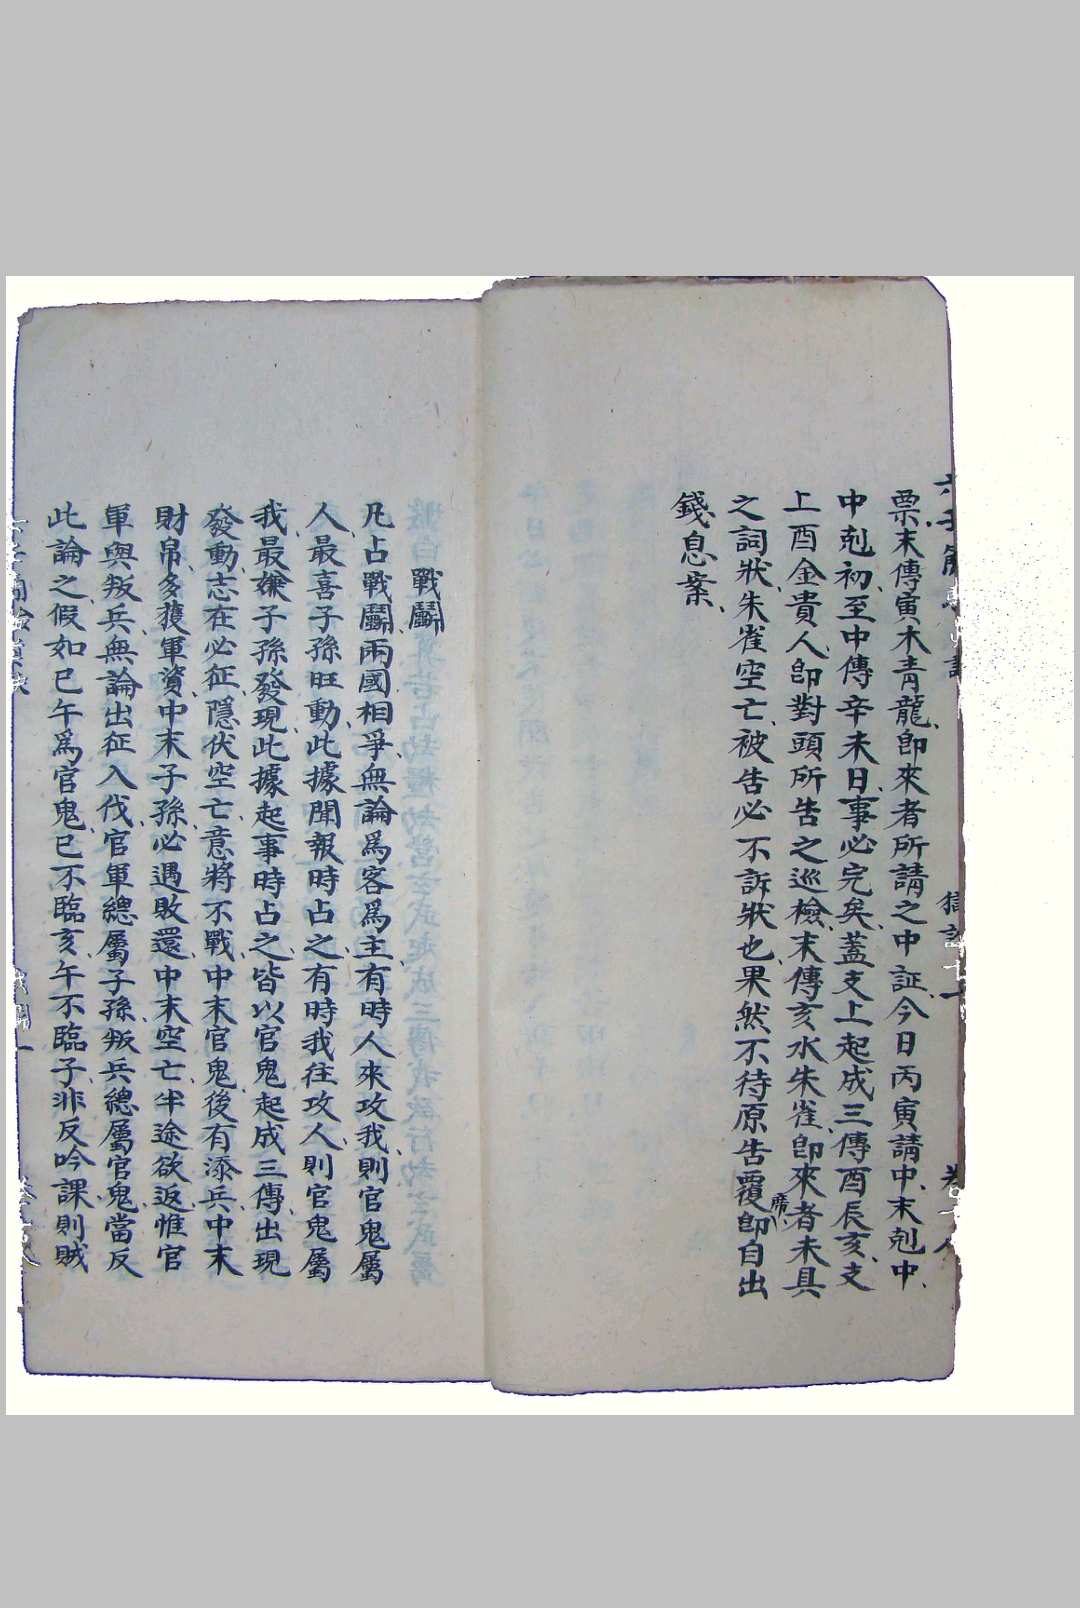 票末傳寅木青龍即來者所請之中証今日丙寅請中末剋中
中剋初至中傳辛未日事必完矣蓋支上起成三傳酉辰亥支
上酉金貴人即對頭所告之巡檢末傳亥水朱雀即來者未具
之詞狀朱雀空亡被告必不訴狀也果然不待原告覆即自出
席
錢息案
戰鬭
凡占戰鬭兩國相爭無論爲客爲主有時人來攻我則官鬼屬
人最喜子孫旺動此據聞報時占之有時我往攻人則官鬼屬
我最嫌子孫發現此據起事時占之皆以官鬼起成三傳出現
發動志在必征隱伏空亡意將不戰中末官鬼後有添兵中末
財帛多獲軍資中末子孫必遇敗還中末空亡半途欲返惟官
軍與叛兵無論出征入伐官軍總屬子孫叛兵總屬官鬼當反
此論之假如巳午爲官鬼巳不臨亥午不臨子非反吟課則賊